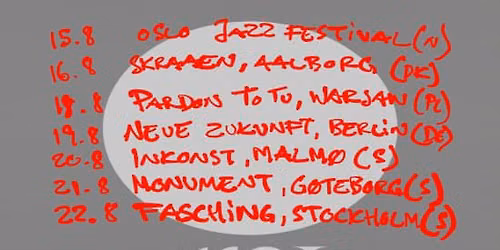 15.8 OSLO JAZZ FESTIVAL (N)
16.8 SKRAAEN, AALBORG (DK)
18.8 PARDON TO TU, WARSAW (PL)
19.8 NEUE ZUKUNFT, BERLIN (DE)
20.8 INKONST, MALMØ (S)
21.8 MONUMENT, GØTEBORG (S)
22.8 FASCHING, STOCKHOLM (S)